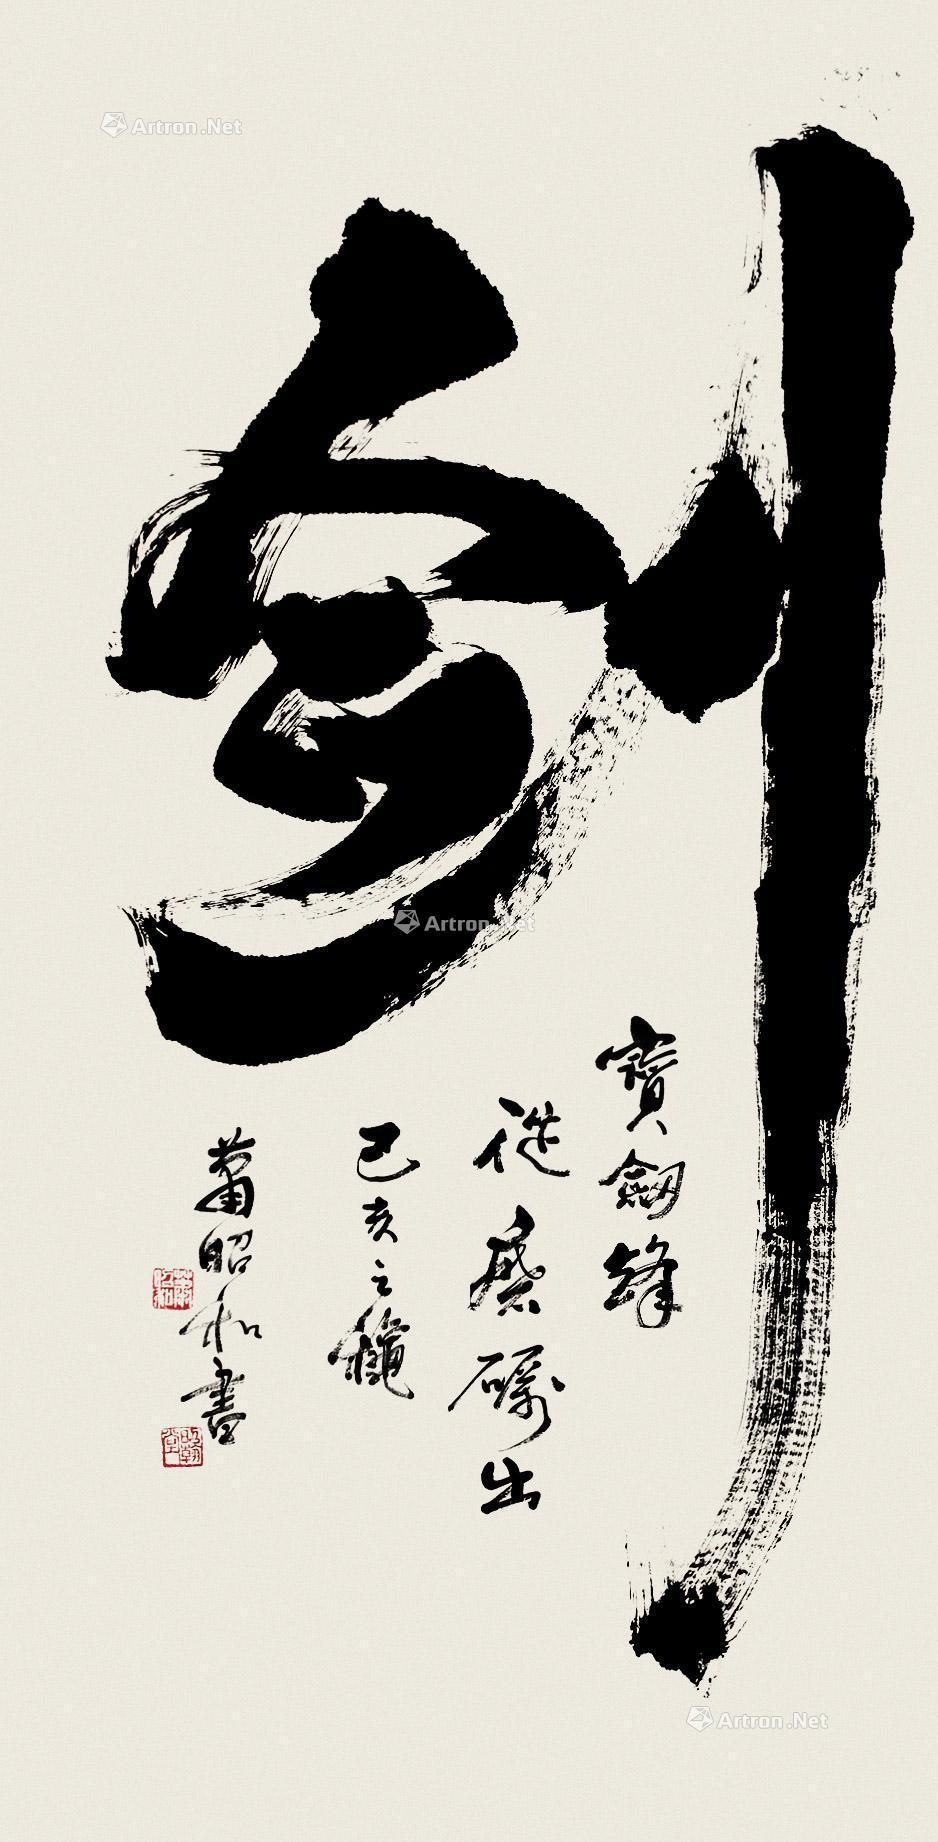 剑
寶劔鋒
從磨礪出
己亥之龝
蕭昭和書
Artron.Net
Artron.Net
Artron.Net